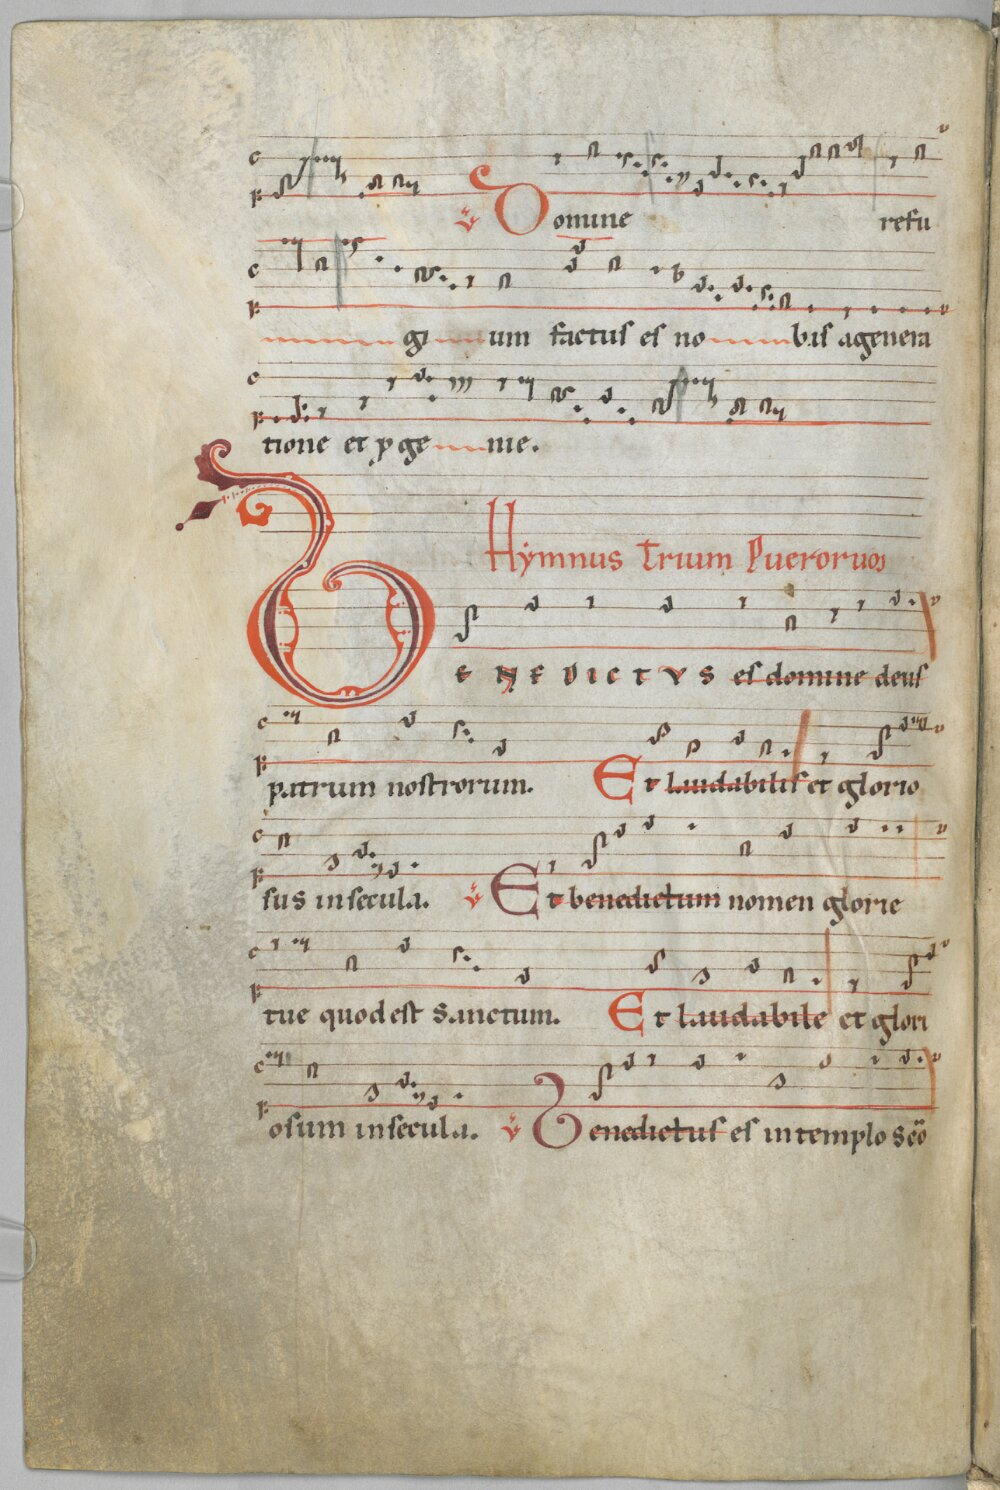 ℣ Domine refu
gi um factus es no bis agenera
tione et p̱ge nie.
Hymnus Trium Puerorum
BENEDICTVS es domine deus
patrum nostrorum. Et laudabilis et glorio
sus insecula. ℣ Et benedictum nomen glorie
tue quod est Sanctum. Et laudabile et glori
osum insecula. ℣ Benedictus es intemplo sc̄o